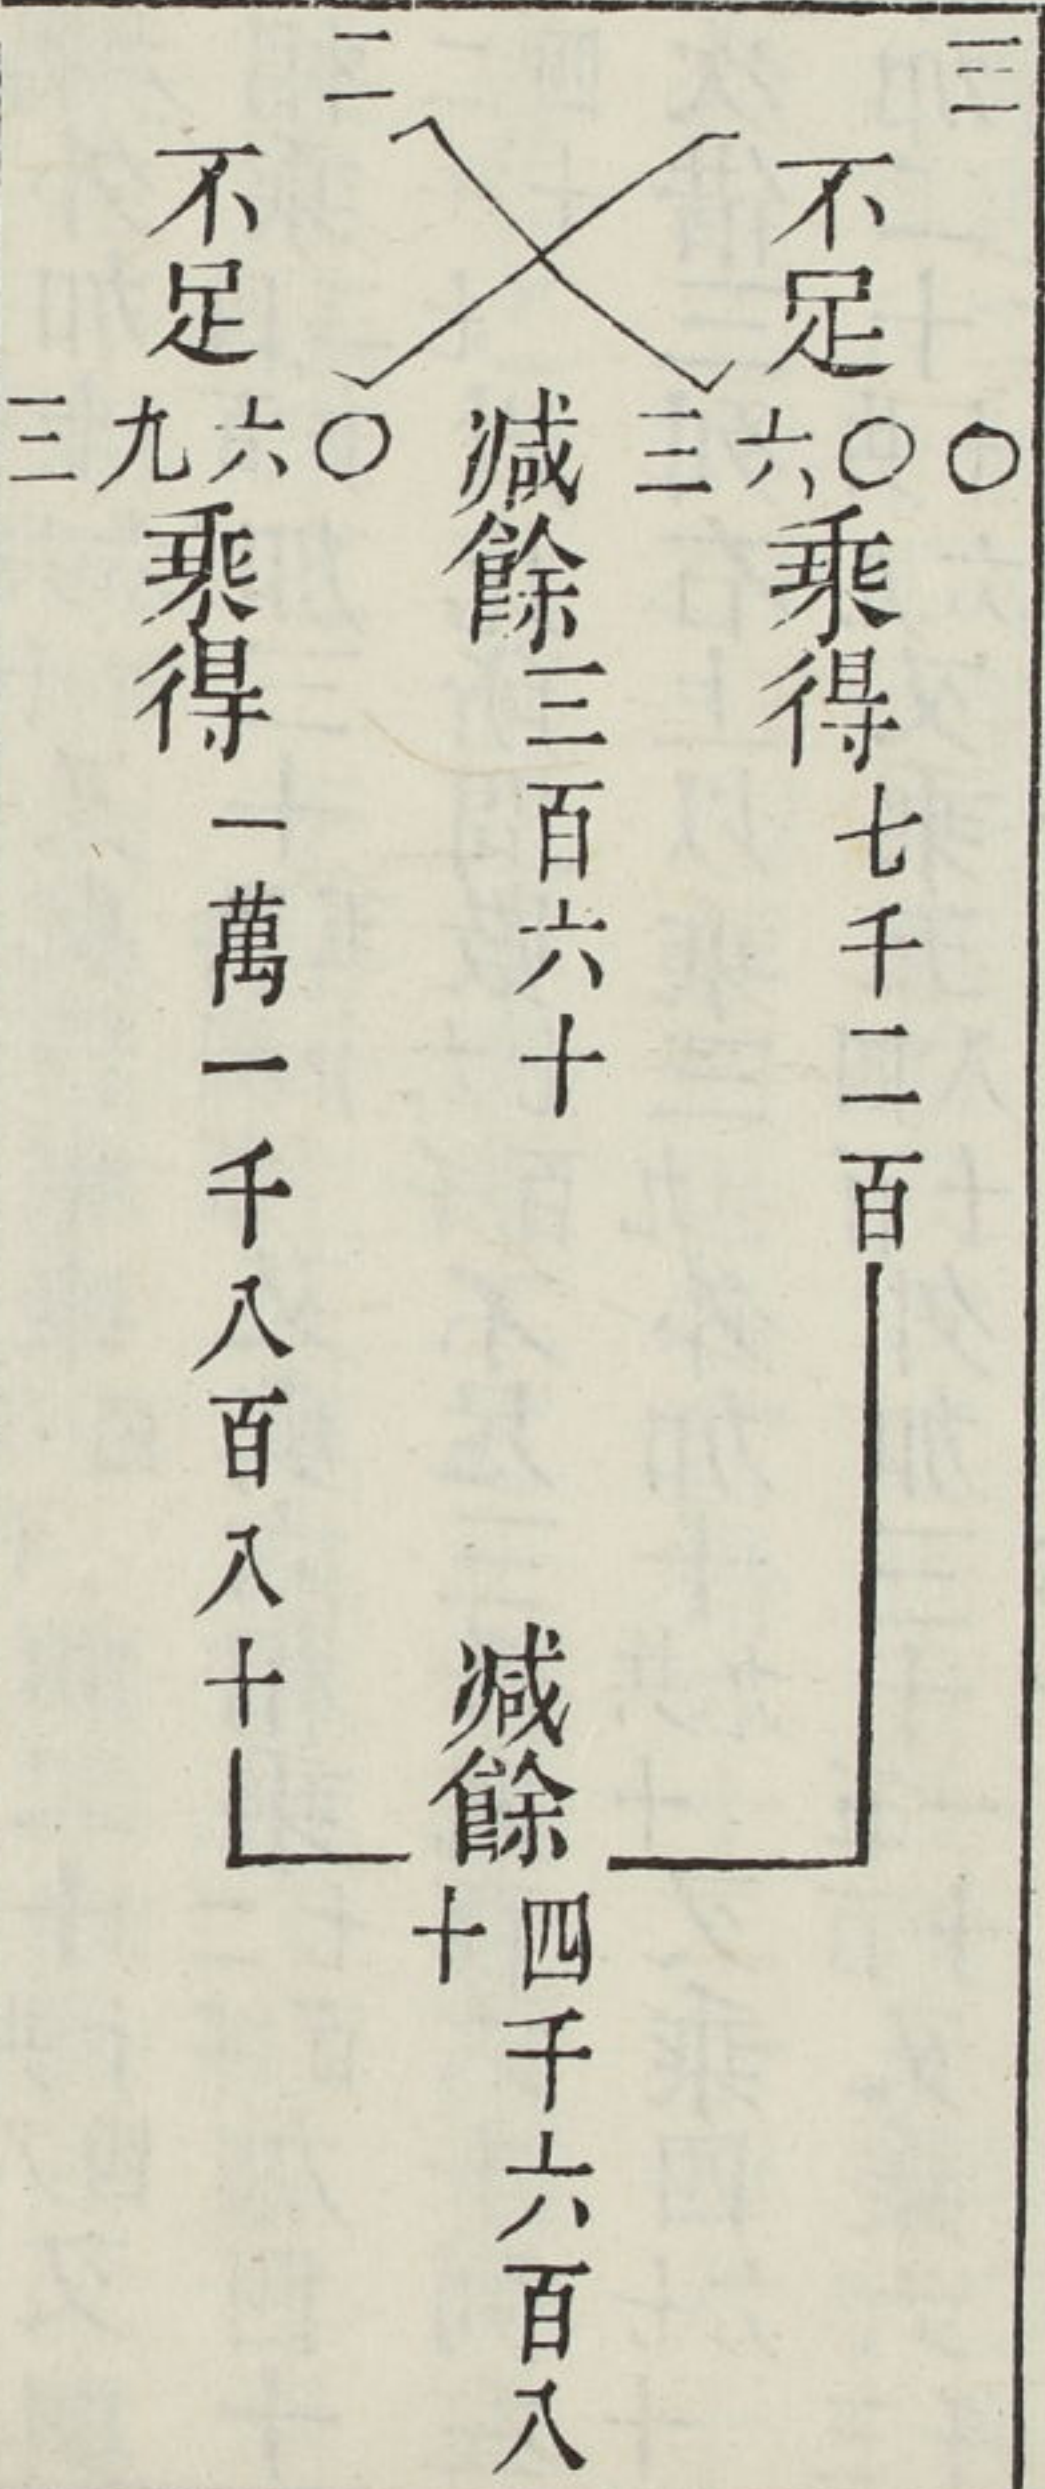 三
不足
三六〇〇
乘得七千二百
減餘三百六十
減餘四千六百八十
二
不足
三九六〇
乘得一萬一千八百八十